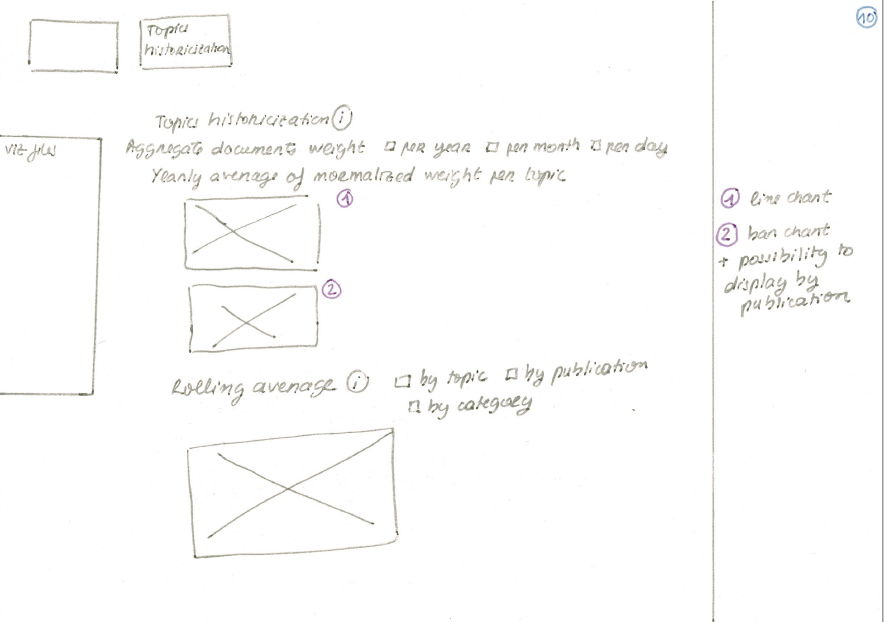 10
Topics
historicization
Topics historicization i
viz files
Aggregate documents weight □ per year □ per month □ per day
Yearly average of normalized weight per topic
1
2
Rolling average i □ by topic □ by publication
□ by category
1 line chart
2 bar chart
+ possibility to
display by
publication